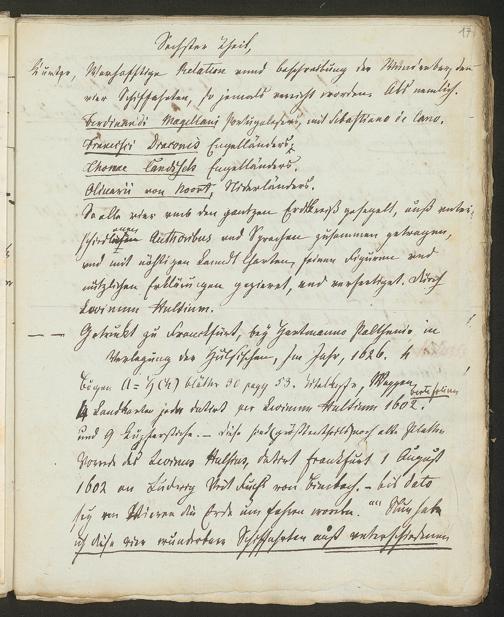 17.
Sechster Theil,
Kurtze, Warhafftige Relation vnnd beschreibung der Wunderbarsten
vier Schiffahrten, so jemals verricht worden. Als nemlich.
Ferdinandi Magellani Portugalesers, mit Sebastiano de Cano.
Francisci Draconis Engelländers,
Thomae Candisch Engelländers.
Oliverii von Noort, Niderländers.
So alle vier vmb den gantzen Erdkreiß gesegelt, auß unter-
schiedlichen Authoribus vnd Sprachen zusammen getragen,
vnd mit nöhtigen Landt Charten, feinen Figuren vnd
nützlichen Erklärungen gezieret, vnd verfertiget. Durch
Levinum Hulsium.
Getruckt zu Franckfurt, bey Hartmanno Palthenio, in
Verlegung der Hülsischen, Im Jahr, 1626. 4
Bogen A = blätter 30 pagg 53. Titelkupfer, Wappen,
4 Landkarten jede datirt per Levinum Hulsium 1602.
und 9 Kupferstiche. – diese sind größtentheils noch alte Platten
Vorrede des Levinus Hulsius, datirt Franckfurt 1 August
1602 an Ludwig Veit Fuchs von Bimbach. – bis dato
sey von Vieren die Erde um fahren worden. Nun habe
ich diese vier wunderbare Schiffahrten auß unterschiedenen